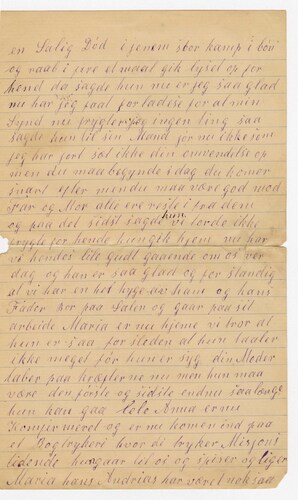 en Salig Død i jenem stor kamp i bön
og raab i fire et maal gik lyset op for
hend da sagde hun nu er jeg saa glad
nu har jeg faat forladese for al min
Synd nu frygter jeg ingen ting saa
sagde hun til sin Mand
jeg har fort sot ikke din omvendelse op
men du maa begynde i dag du komer
snart efter men du maa være god mod
Far og Mor alle ere reste i fra dem
og paa det sidst sagde hun vi torde ikke
frygte for hende hun gik hjem nu har
vi hendes lile Guds gaaende om os ver
dag og han er saa glad og for standig
at vi har en hel hyge av ham og hans
Fader er paa Salen og gaar paa sit
arbeide Maria er nu hjeme vi tror at
hun er saa for stoden at hun taaler
ikke meget for hun er syg din Moder
taber paa krafterne nu men hun maa
være den förste og sidste endnu saalænge
hun kan gaa Anna er nu
Konfirmeret og er nu komen ind paa
et Bogtrykeri hvor di tryker Misjons
tidende hun gaar til os og spiser og liger
Maria hans Andreas har været nok saa